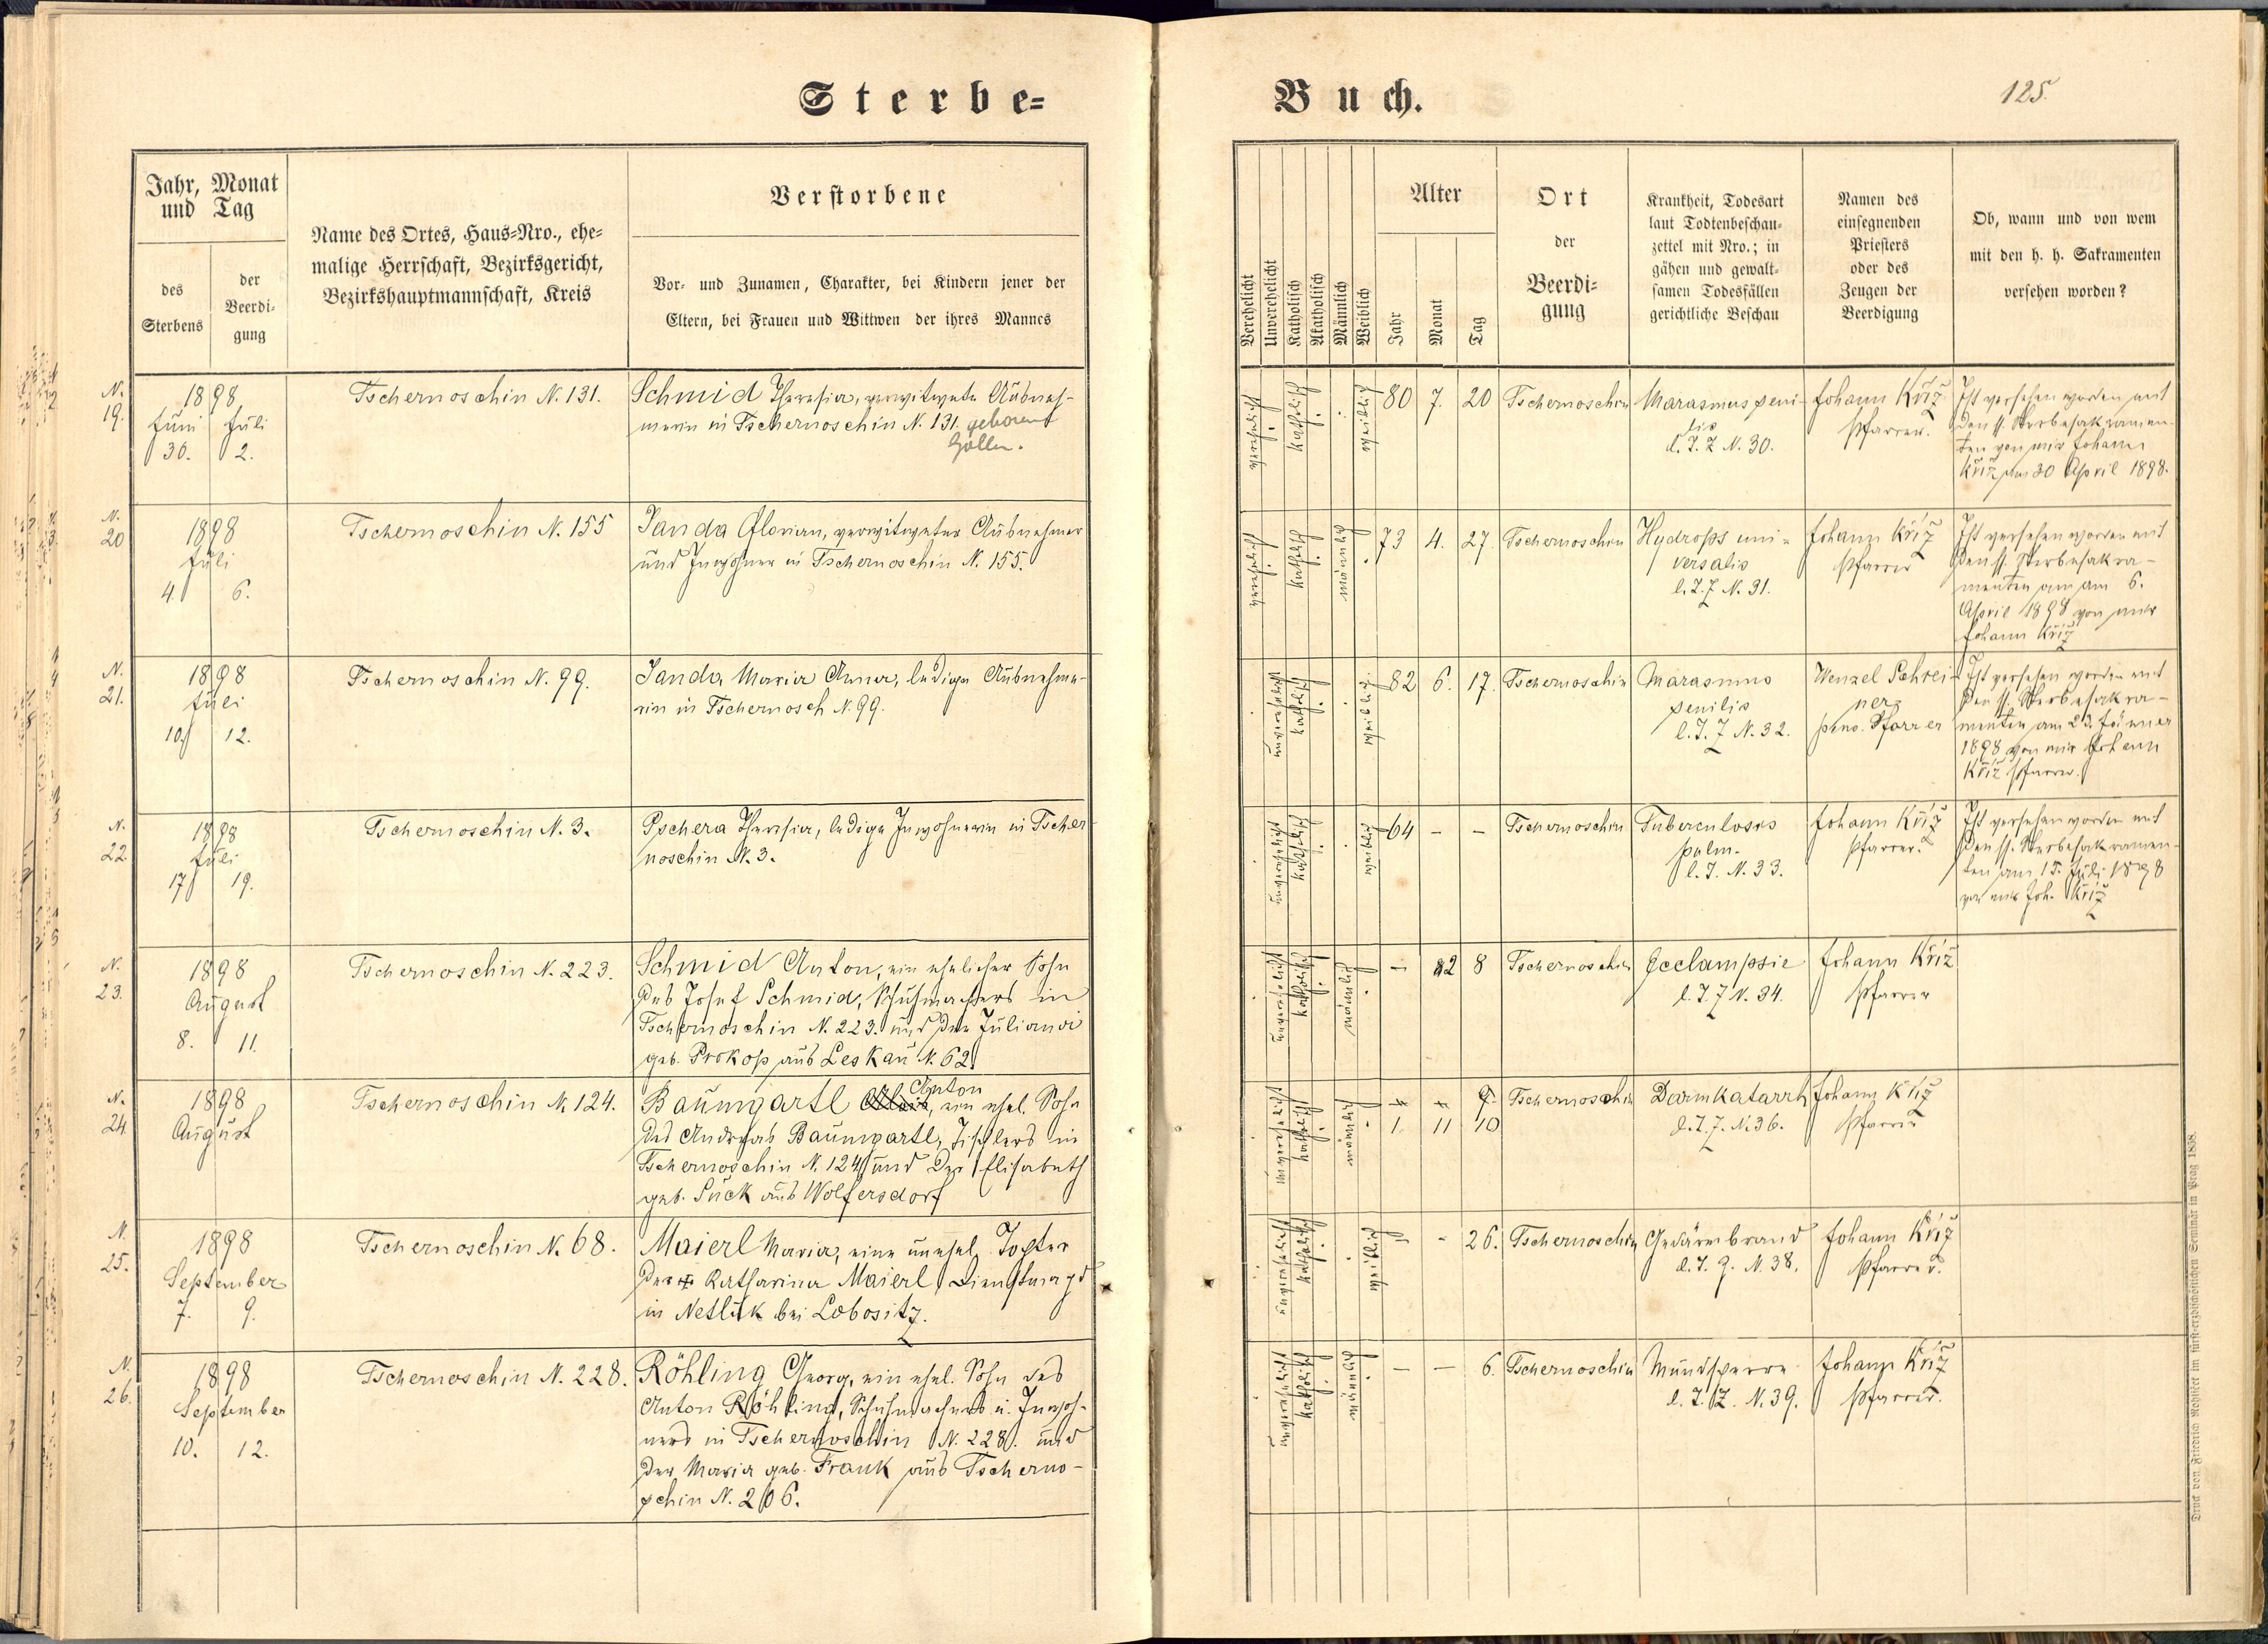 Sterbe=
Jahr, Monat
und Tag
des
Sterbens
der
Beerdi-
gung
Name des Ortes, Haus=Nro., ehe-
malige Herrschaft, Bezirksgericht,
Bezirkshauptmannschaft, Kreis
Verstorbene
Vor- und Zunamen, Charakter, bei Kindern jener der
Eltern, bei Frauen und Wittwen der ihres Mannes
N.
19.
1898
Juni Juli
30. 2.
Tschernoschin N. 131.
Schmid Theresia, verwitwete Ausneh-
merin in Tschernoschin N. 131. geborene
N.
20
1898
Juli
4. 6.
Tschernoschin N. 155
Janda Florian, verwitweter Ausnehmer
und Inwohner in Tschernoschin N. 155.
N.
21.
1898
Juli
10. 12.
Tschernoschin N. 99.
Janda Maria Anna, ledige Ausnehme-
rin in Tschernosch N. 99.
N.
22
1898
Juli
17 19.
Tschernoschin N. 3.
Pschera Theresia, ledige Inwohnerin in Tscher
noschin N. 3.
N.
23.
1898
August
8. 11.
Tschernoschin N. 223.
Schmid Anton, ein ehelicher Sohn
des Josef Schmid, Schuhmachers in
Tschernoschin N. 223. und der Juliana
geb. Prokop aus Leskau N. 62.
N.
24
1898
August
Tschernoschin N. 124.
Anton
Baumgartl, ein ehel. Sohn
des Andreas Baumgartl, Tischlers in
Tschernoschin N. 124 und der Elisabeth
geb. Suck aus Wolfersdorf
N.
25.
1898
September
7. 9.
Tschernoschin N. 68.
Maierl Maria, eine unehel. Tochter
der Katharina Maierl Dienstmagd
in Netluk bei Lobositz.
N.
26.
1898
September
10. 12.
Tschernoschin N. 228.
Röhling Georg, ein ehel. Sohn des
Anton Röhling, Schuhmachers u. Inwoh-
ners in Tschernoschin N. 228. und
der Maria geb. Frank aus Tscherno-
schin N. 206.
Buch.
125.
Verehelicht
Unverehelicht
Katholisch
Akatholisch
Männlich
Weiblich
Alter
Jahr
Monat
Tag
Ort
der
Beerdi-
gung
Krankheit, Todesart
laut Todtenbeschau-
zettel mit Nro.; in
gähen und gewalt-
samen Todesfällen
gerichtliche Beschau
Namen des
einsegnenden
Priesters
oder des
Zeugen der
Beerdigung
Ob, wann und von wem
mit den h. h. Sakramenten
versehen worden?
verehelicht
katholisch
weiblich
80 7. 20
Tschernoschin
Marasmus seni-
lis
l. T. Z N. 30.
Johann Kříž
Pfarrer.
Ist versehen worden mit
den hl. Sterbesakramen-
ten von mir Johann
Kříž am 30 April 1898.
verehelicht
katholisch
männlich
73 4. 27.
Tschernoschin
Hydrops uni-
versalis
l. T. Z N. 31.
Johann Kříž
Pfarrer
Ist versehen worden mit
den hl. Sterbesakra-
menten am am 6.
April 1898 von mir
Johann Kříž
unverehelicht
katholisch
weiblich
82 6. 17.
Tschernoschin
Marasmus
senilis
l. T. Z N. 32.
Wenzel Schrei-
ner
pens. Pfarrer
Ist versehen worden mit
den hl. Sterbesakra-
menten am 23. Jänner
1898 von mir Johann
Kříž Pfarrer.
unverehelicht
katholisch
weiblich
64 - -
Tschernoschin
Tuberculosis
pulm.
l. T. N. 33.
Johann Kříž
Pfarrer.
Ist versehen worden mit
den hl. Sterbesakramen-
ten am 15. Juli 1898
von mir Joh. Kříž
unverehelicht
katholisch
männlich
- 2 8
Tschernoschin
Ecclampsie
l. T. Z N. 34.
Johann Kříž
Pfarrer
unverehelicht
katholisch
männlich
1. 11 10
Tschernoschin
Darmkatarrh
l. T. Z. N. 36.
Johann Kříž
Pfarrer
unverehelicht
katholisch
weiblich
- - 26.
Tschernoschin
Gedärmbrand
l. T. Z. N. 38.
Johann Kříž
Pfarrer.
unverehelicht
katholisch
männlich
- - 6.
Tschernoschin
Mundsperre
l. T. Z. N. 39.
Johann Kříž
Pfarrer.
Druck von Friedrich Rohliček im fürst-erzbischöflichen Seminär in Prag 1858.